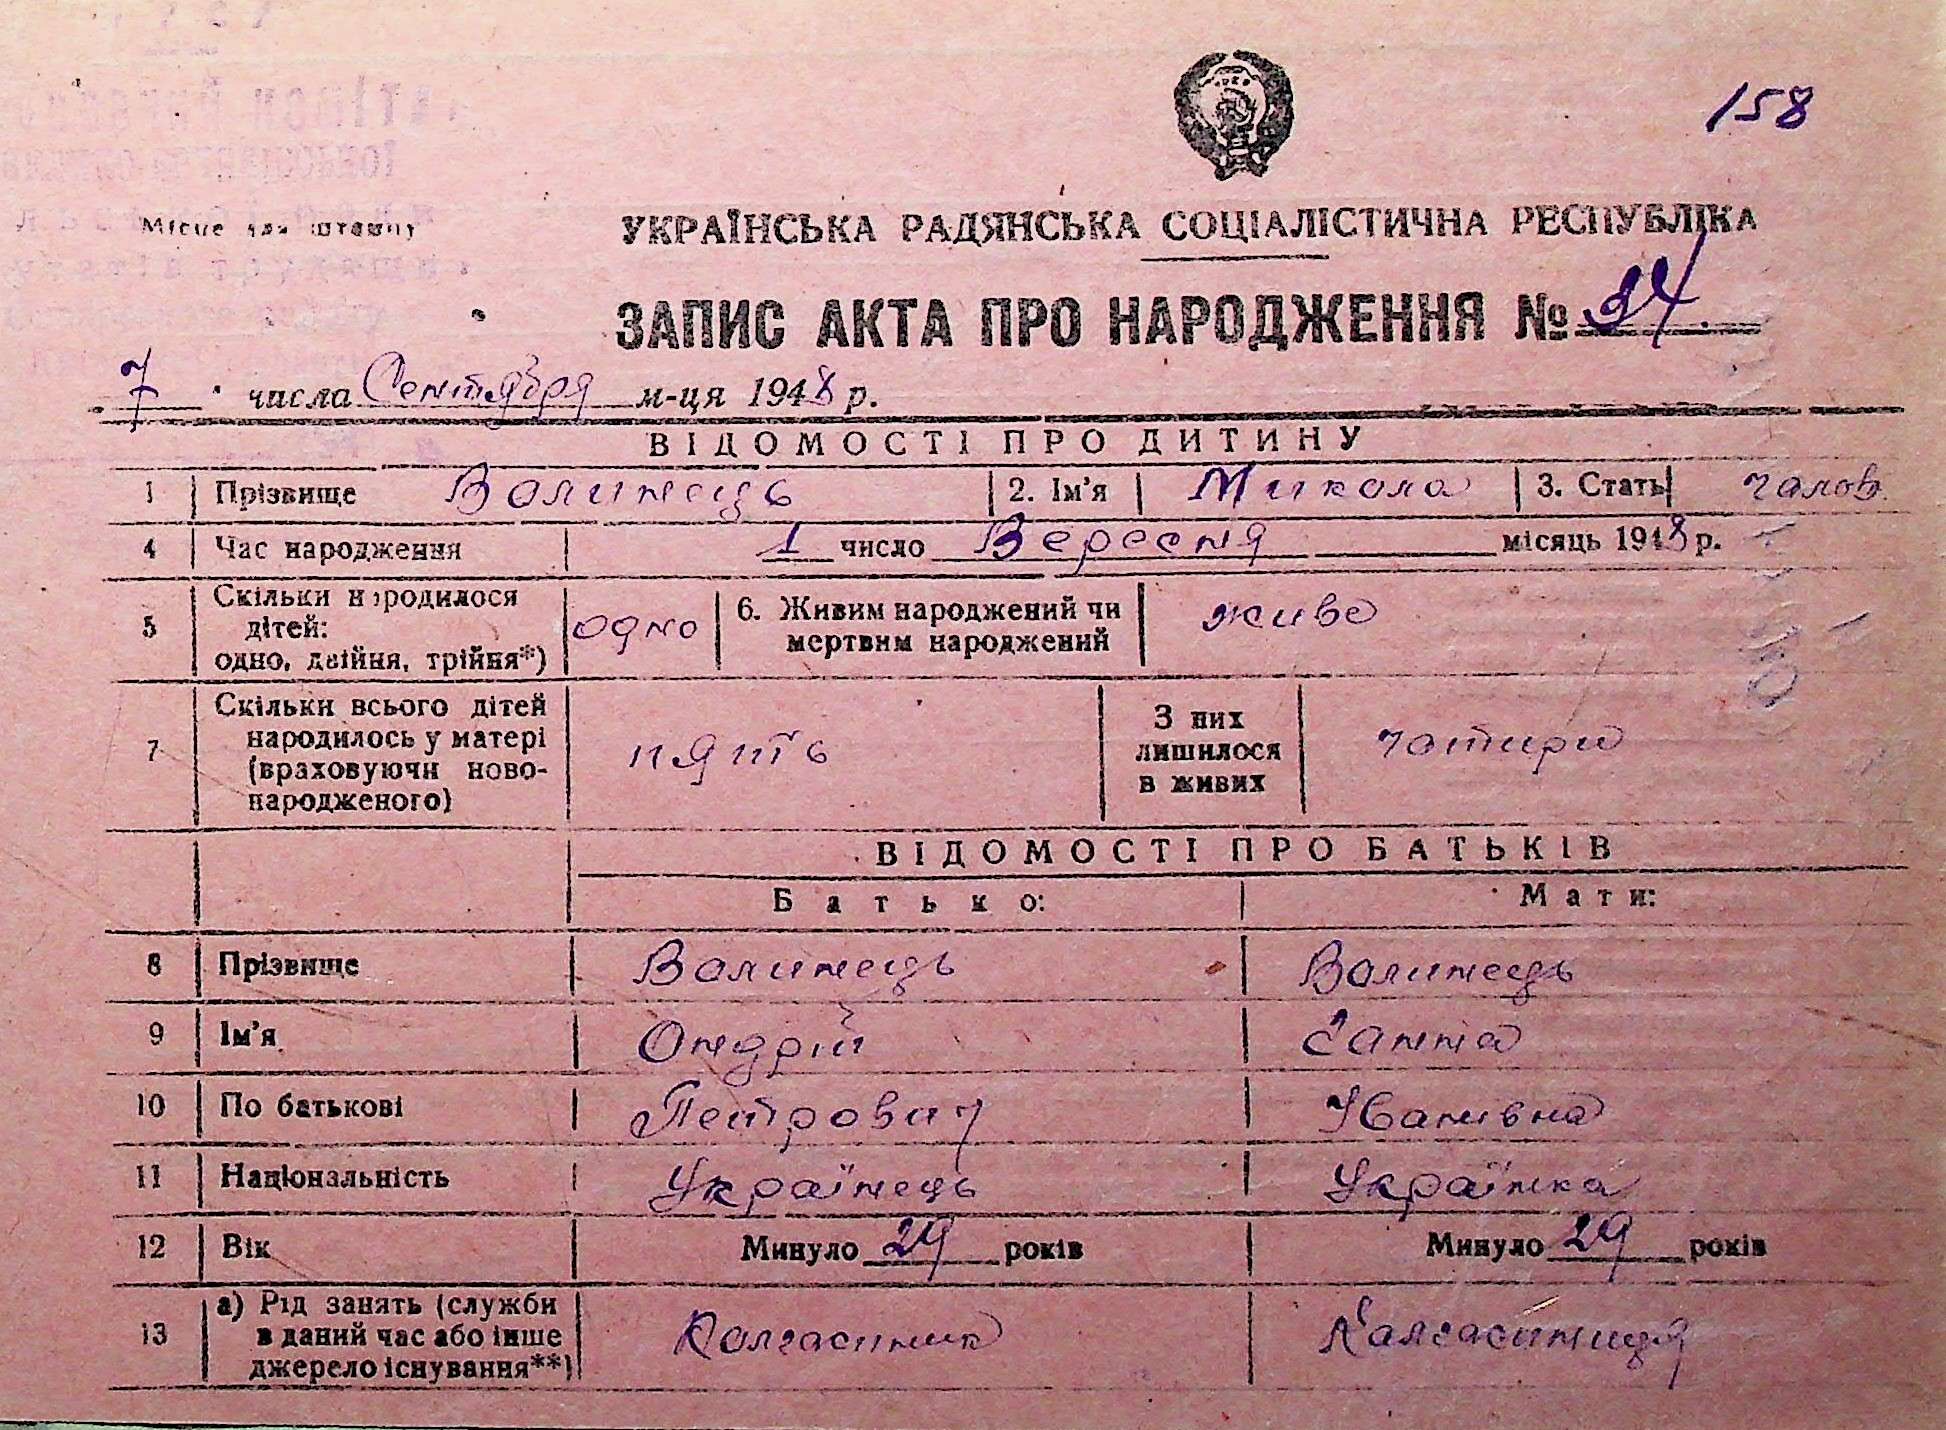 158
Місце для штампу
УКРАЇНСЬКА РАДЯНСЬКА СОЦІАЛІСТИЧНА РЕСПУБЛІКА
ЗАПИС АКТА ПРО НАРОДЖЕННЯ № 34.
7 числа Сентября м-ця 1948 р.
ВІДОМОСТІ ПРО ДИТИНУ
1 Прізвище Волинець 2. Ім'я Микола 3. Стать чалов.
4 Час народження 1 число Вересня місяць 1948 р.
5 Скільки народилося дітей: одно, двійня, трійня*) одно 6. Живим народжений чи мертвим народжений живе
7 Скільки всього дітей народилось у матері (враховуючи ново-народженого) пять З них лишилося в живих чотири
ВІДОМОСТІ ПРО БАТЬКІВ
Батько: Мати:
8 Прізвище Волинець Волинець
9 Ім'я Ондрій Ганна
10 По батькові Петрович Іванівна
11 Національність Українець Українка
12 Вік Минуло 29 років Минуло 29 років
13 а) Рід занять (служби в даний час або інше джерело існування**) Колгосиник Калгосиниця